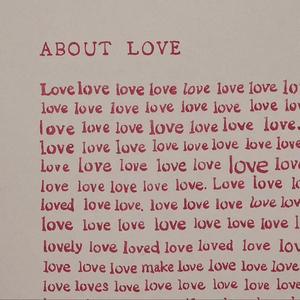 ABOUT LOVE
Love love love love love love love
love love love love love love love
love love love love love love love.
love love love love love love love
love love love love love love love
love love love love love. Love love
loved love love. love love love love love
love love love love love love love
lovely love loved love loved love love
love love love make love love love love
love loves love love love love love love